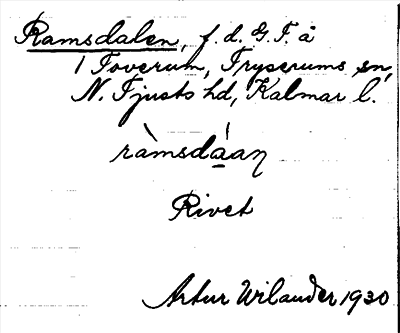 Ramsdalen, f. d. G. T. å
1 Toverum, Tryserums sn,
N. Tjusts hd, Kalmar l.
ràmsdáaŋ
Rivet
Artur Wilander 1930